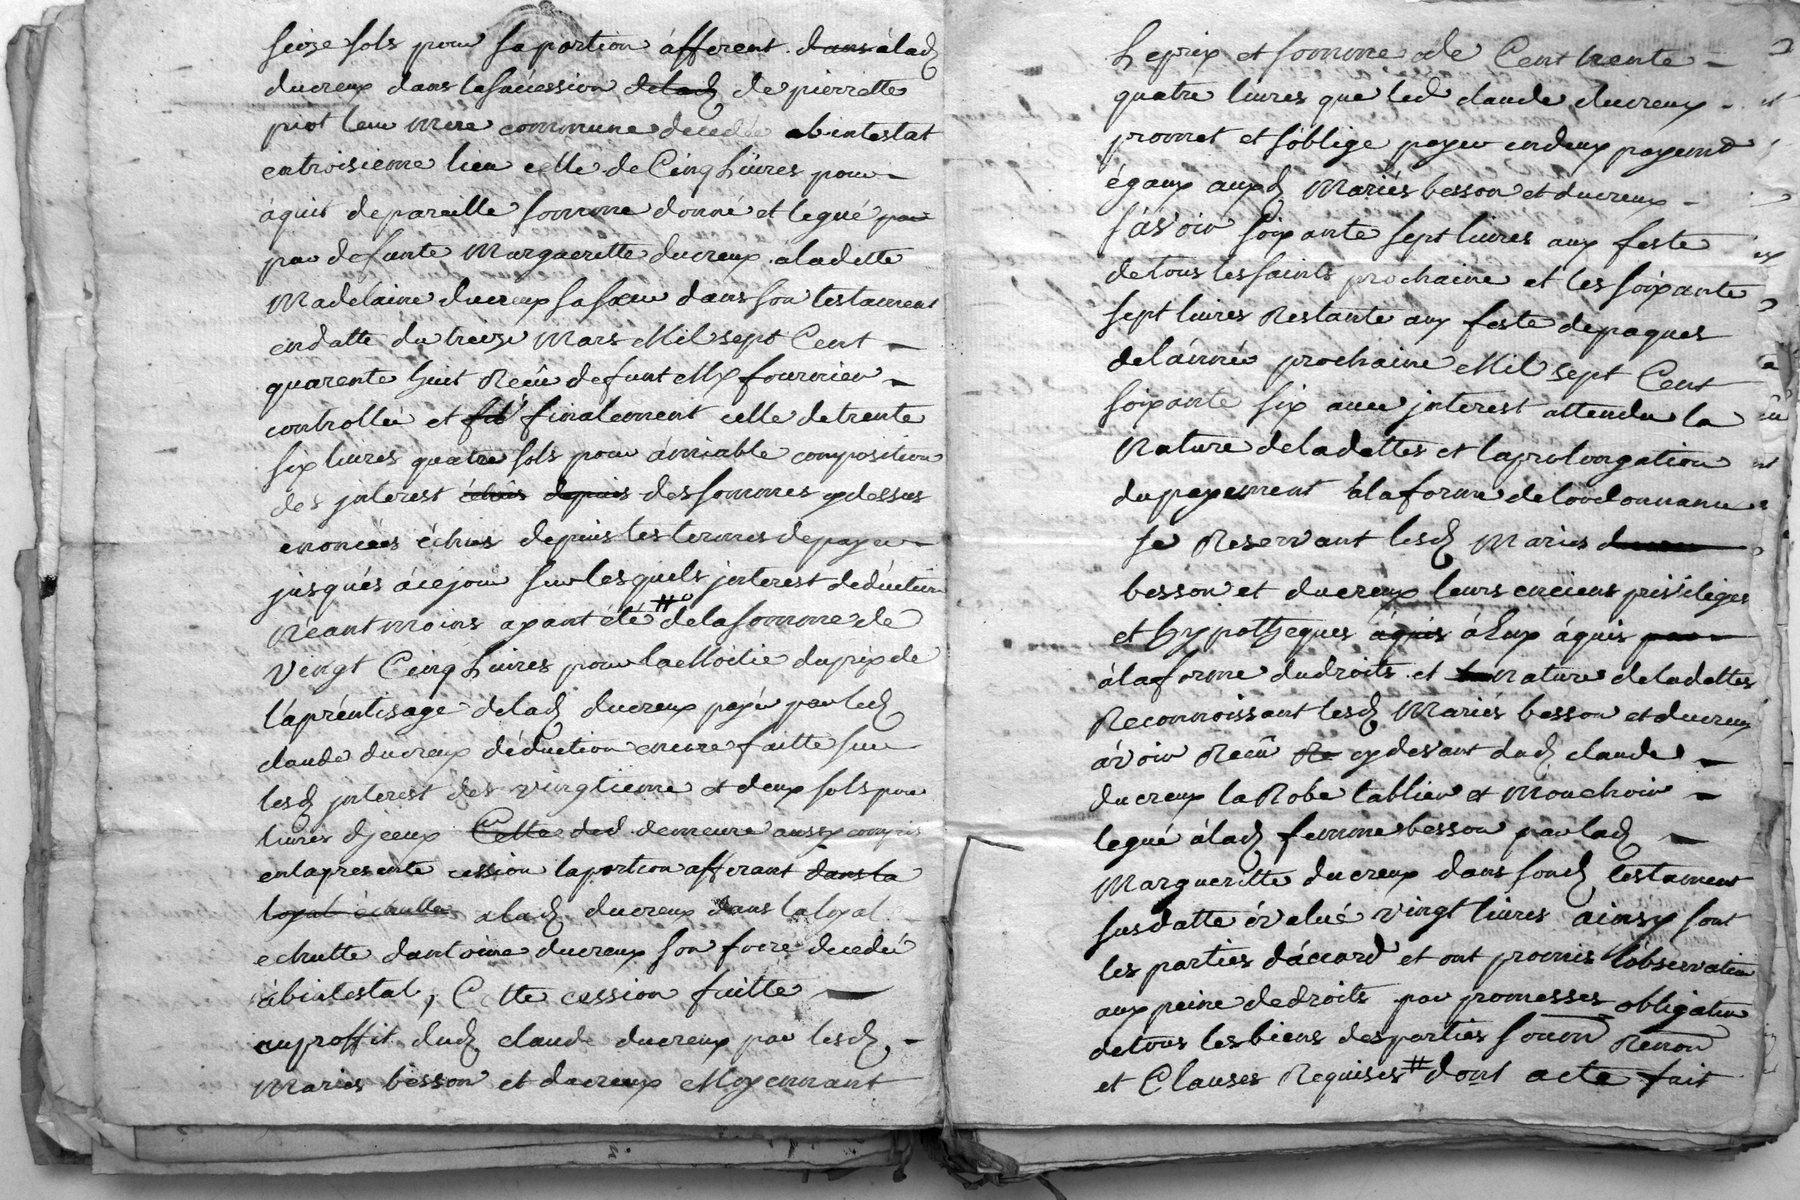 seize sols pour sa portion áfferent dans álad
ducreux dans la suécession delad de pierrette
piot leur mere commune decedée abintestat
entroisieme lieu celle de Cinq Livres pour
áquit de pareille somme donné et legué par
par defunte Margueritte ducreux aladitte
Madelaine ducreux sa sœur dans son testament
en datte du treize Mars Mil sept Cent
quarente huit Recû defunt Mx fournier
controllée et finalement celle detrente
six livres quatre sols pour ámiable composition
des jnterest échus depuis des sommes cydessus
enoncées échus depuis les termes depayer
jusqués ácejour sur lesquels jnterest dedúction
Néant moins ayant été # delasomme de
Vingt Cinq Livres pour la Moitié duprix de
l'apréntisage delad ducreux payée par led
claude ducreux déduction encore faitte sur
lesd jnterest des vingtieme et deux sols pour
livres djceux Cette ded demeure aussy compris
enlapresente cession laportion afferant dans la
loyal échutte alad ducreux dans la loyal
echutte dantoine ducreux son frere decedé
ábintestat, Cette cession faitte
auproffit dud claude ducreux par lesd
Mariés besson et ducreux Moyennant
Le prix et somme de Cent trente
quatre livres que led claude ducreux
promet et s'oblige payer endeux payemt
égaux auxd Mariés besson et ducreux
sávoir soixante sept livres aux feste
detous les saints prochaine et les soixante
sept livres Restante aux feste depaques
delánnée prochaine Mil sept Cent
soixante six avec jnterest attendu la
Nature deladettes et laprolongation
dupayement álaforme delordonnance
se Reservant lesd Mariés
besson et ducreux leurs enciens priviléges
et hypotheques aquis áEux áquis par
álaforme dudroits et Nature deladettes
Reconnoissant lesd Mariés besson et ducreux
ávoir Recû Re cydevant dud claude
ducreux la Robe tablier et Mouchoir
legué álad femme besson par lad
Margueritte ducreux dans sond testament
susdatte évalué vingt livres ainsy sont
les parties dáccord et ont promis l'observation
aux peine dedroits par promesses obligation
detous les biens desparties soumon Renon
et Clauses Requises # dont acte fait